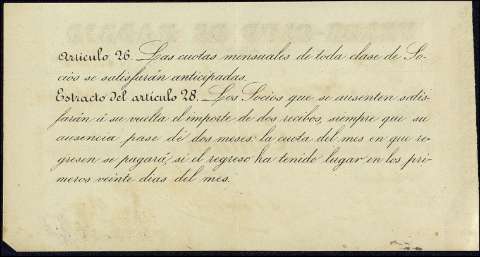 Artículo 26. Las cuotas mensuales de toda clase de So-
cios se satisfarán anticipadas.
Estracto del artículo 28. Los Socios que se ausenten satis-
farán á su vuelta el importe de dos recibos, siempre que su
ausencia pase de dos meses: la cuota del mes en que re-
gresen se pagará, si el regreso ha tenido lugar en los pri-
meros veinte dias del mes.